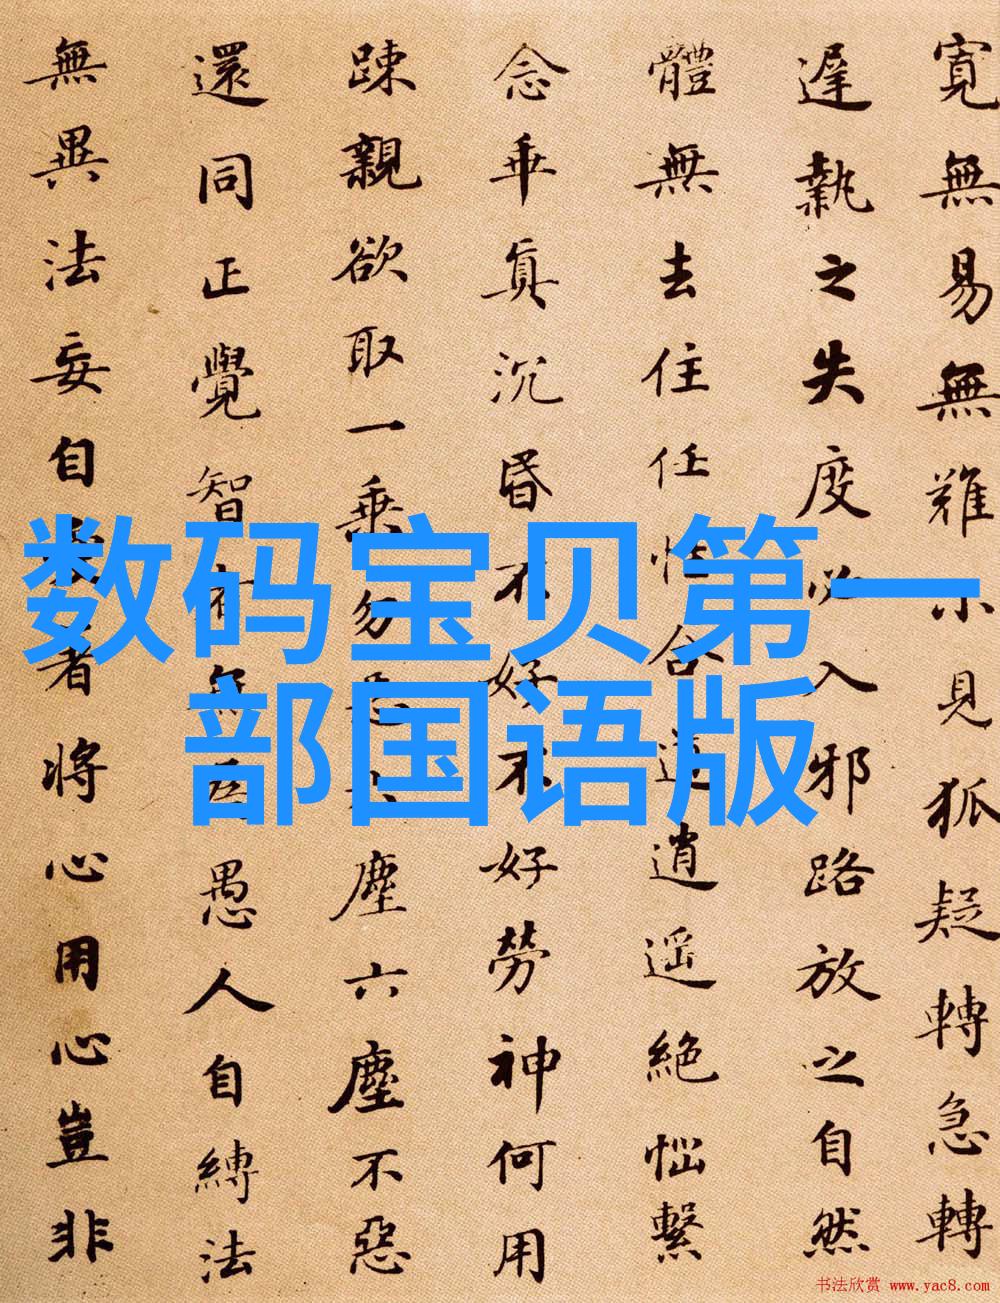 数码宝贝第一
部国语版
寛無易無難小見狐疑轉急轉
遲執之失度必入邪路放之自然
體無去住任性合道逍遥絶惱繫
念乖真沉昏不好不好勞神何用
踈親欲取一乘勿惡六塵六塵不惡
還同正覺智無為愚人自縛法
無異法妄自愛著將心用心豈非
书法欣赏 www.yac8.com